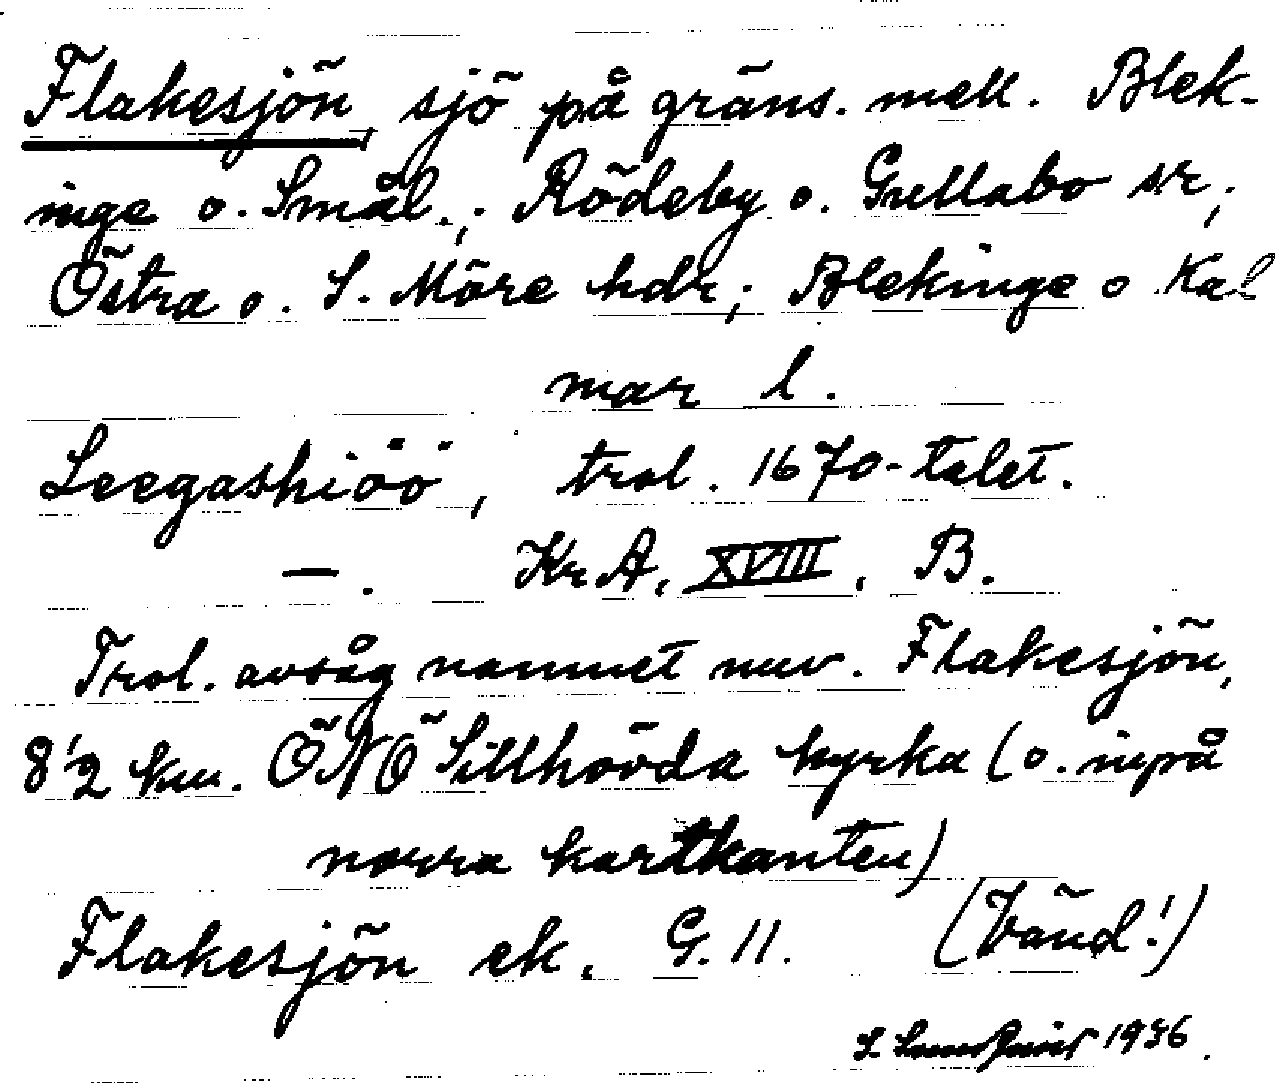 Flakesjön, sjö på gräns. mell. Blek-
inge o. Smål.; Rödeby o. Gullabo sr;
Östra o. S. Möre hdr; Blekinge o Kal
mar l.
Leegashiöö, trol. 1670-talet.
—. Kr A, XVIII, B.
Trol. avsåg namnet nuv. Flakesjön,
8 1/2 km. ÖNÖ Sillhövda kyrka (o. inpå
norra kartkanten)
Flakesjön ek. G. 11. (Vänd!)
S. 1936.